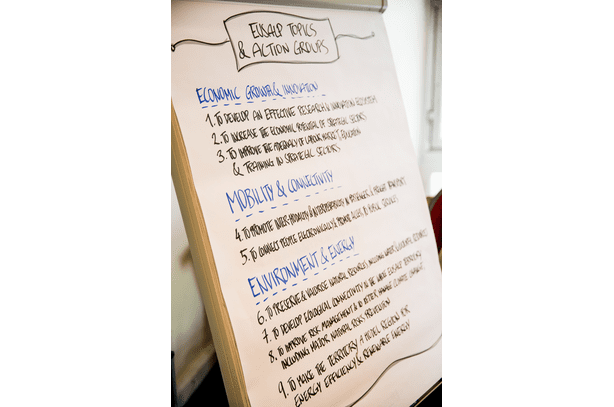 EUSALP TOPICS
& ACTION GROUPS
ECONOMIC GROWTH & INNOVATION
1. TO DEVELOP AN EFFECTIVE RESEARCH & INNOVATION ECOSYSTEM
2. TO INCREASE THE ECONOMIC POTENTIAL OF STRATEGIC SECTORS
3. TO IMPROVE THE ADEQUACY OF LABOUR MARKET, EDUCATION
& TRAINING IN STRATEGIC SECTORS
MOBILITY & CONNECTIVITY
4. TO PROMOTE INTER-MODALITY & INTEROPERABILITY IN PASSENGER & FREIGHT TRANSPORT
5. TO CONNECT PEOPLE ELECTRONICALLY & PROMOTE ACCESS TO PUBLIC SERVICES
ENVIRONMENT & ENERGY
6. TO PRESERVE & VALORISE NATURAL RESOURCES, INCLUDING WATER & CULTURAL RESOURCES
7. TO DEVELOP ECOLOGICAL CONNECTIVITY IN THE WHOLE EUSALP TERRITORY
8. TO IMPROVE RISK MANAGEMENT & TO BETTER MANAGE CLIMATE CHANGE,
INCLUDING MAJOR NATURAL RISKS PREVENTION
9. TO MAKE THE TERRITORY A MODEL REGION FOR
ENERGY EFFICIENCY & RENEWABLE ENERGY